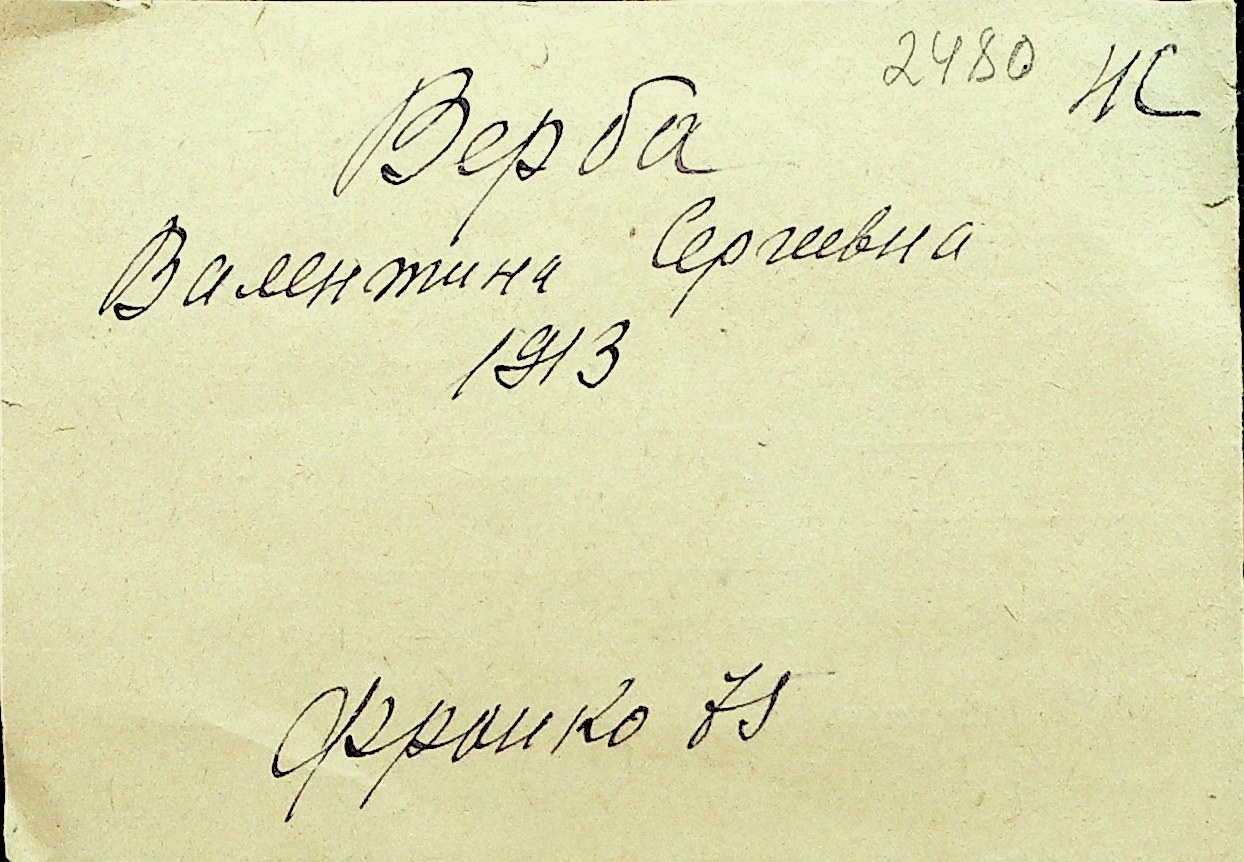 2480 НС
Верба
Валентина Сергеевна
1913
Франко 75